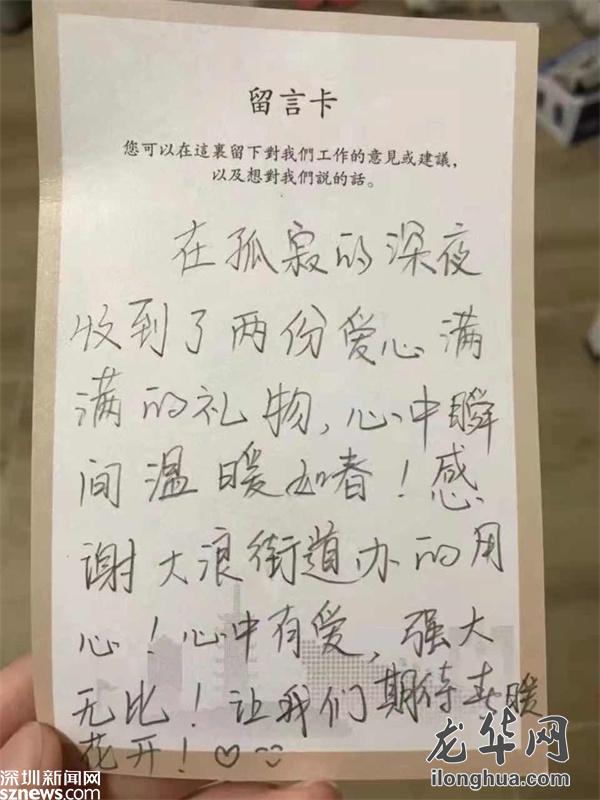 留言卡
您可以在這裏留下對我們工作的意見或建議，
以及想對我們説的話。
在孤寂的深夜
收到了两份爱心满
满的礼物，心中瞬
间温暖如春！感
谢大浪街道办的用
心！心中有爱，强大
无比！让我们期待春暖
花开！
深圳新闻网
sznews.com
龙华网
ilonghua.com